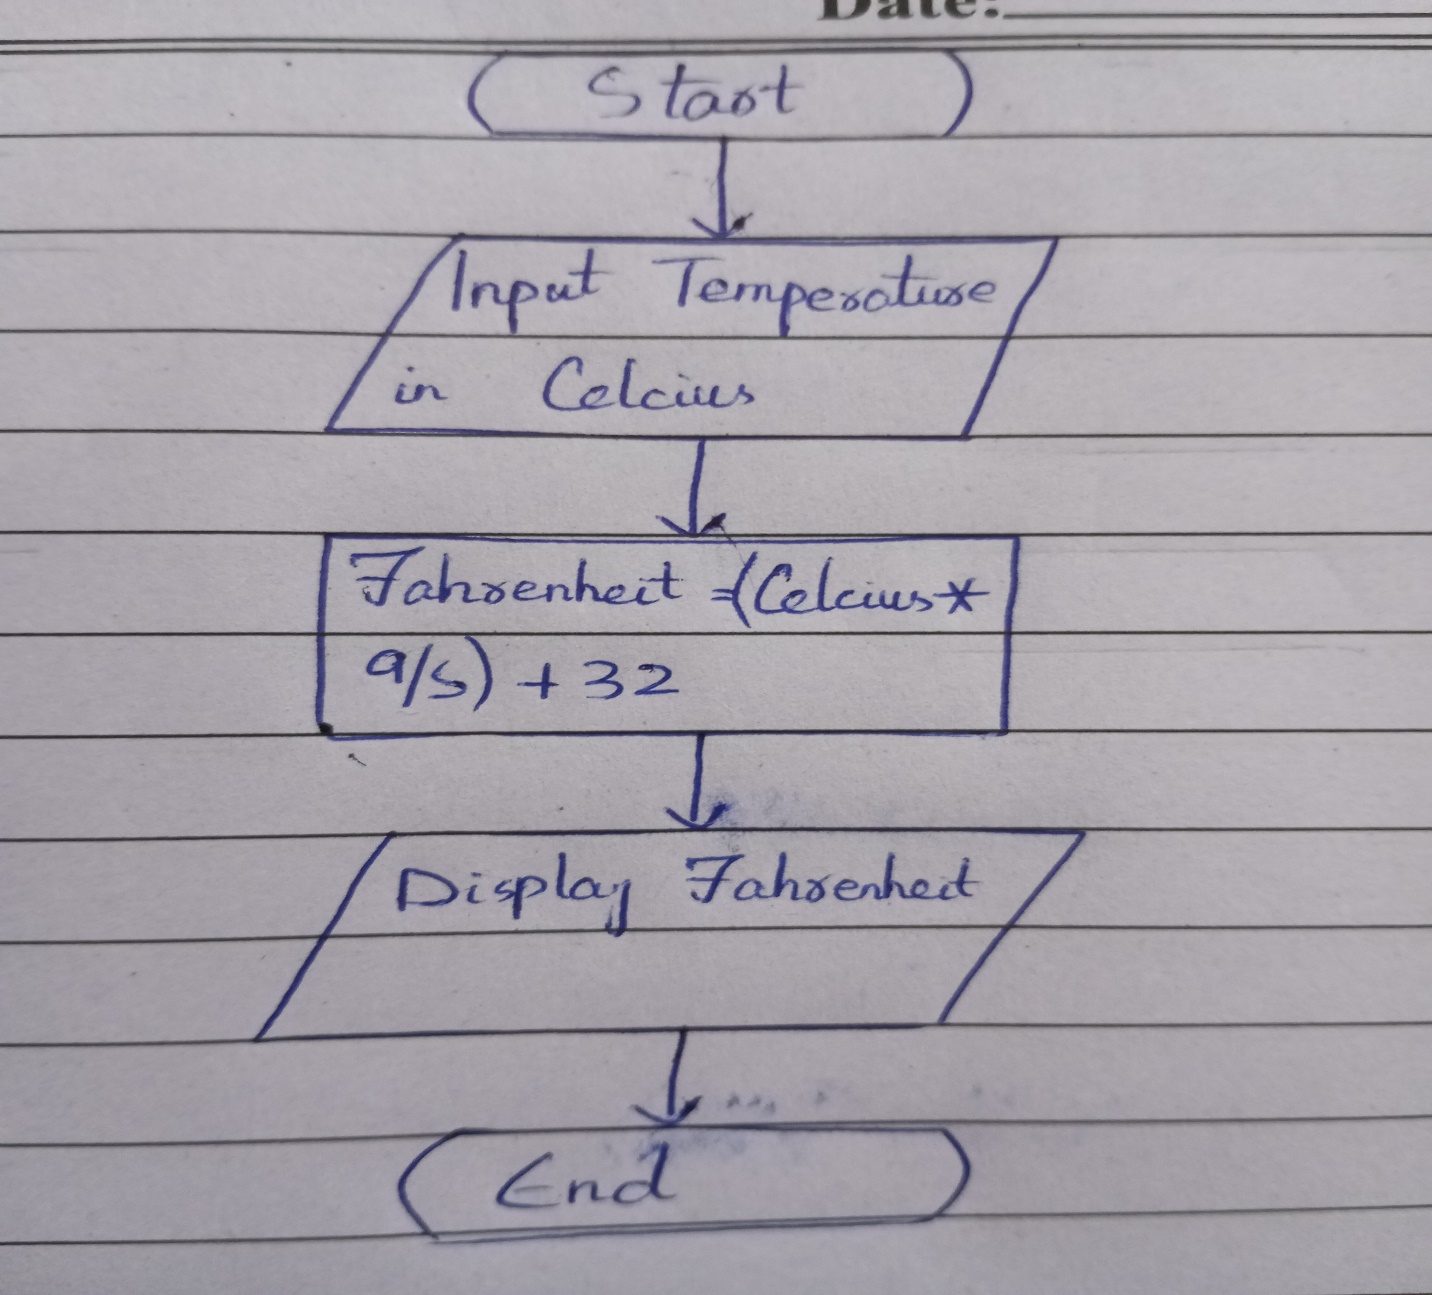 Date:
Start
Input Temperature
in Celcius
Fahrenheit =(Celcius*
9/5) + 32
Display Fahrenheit
End